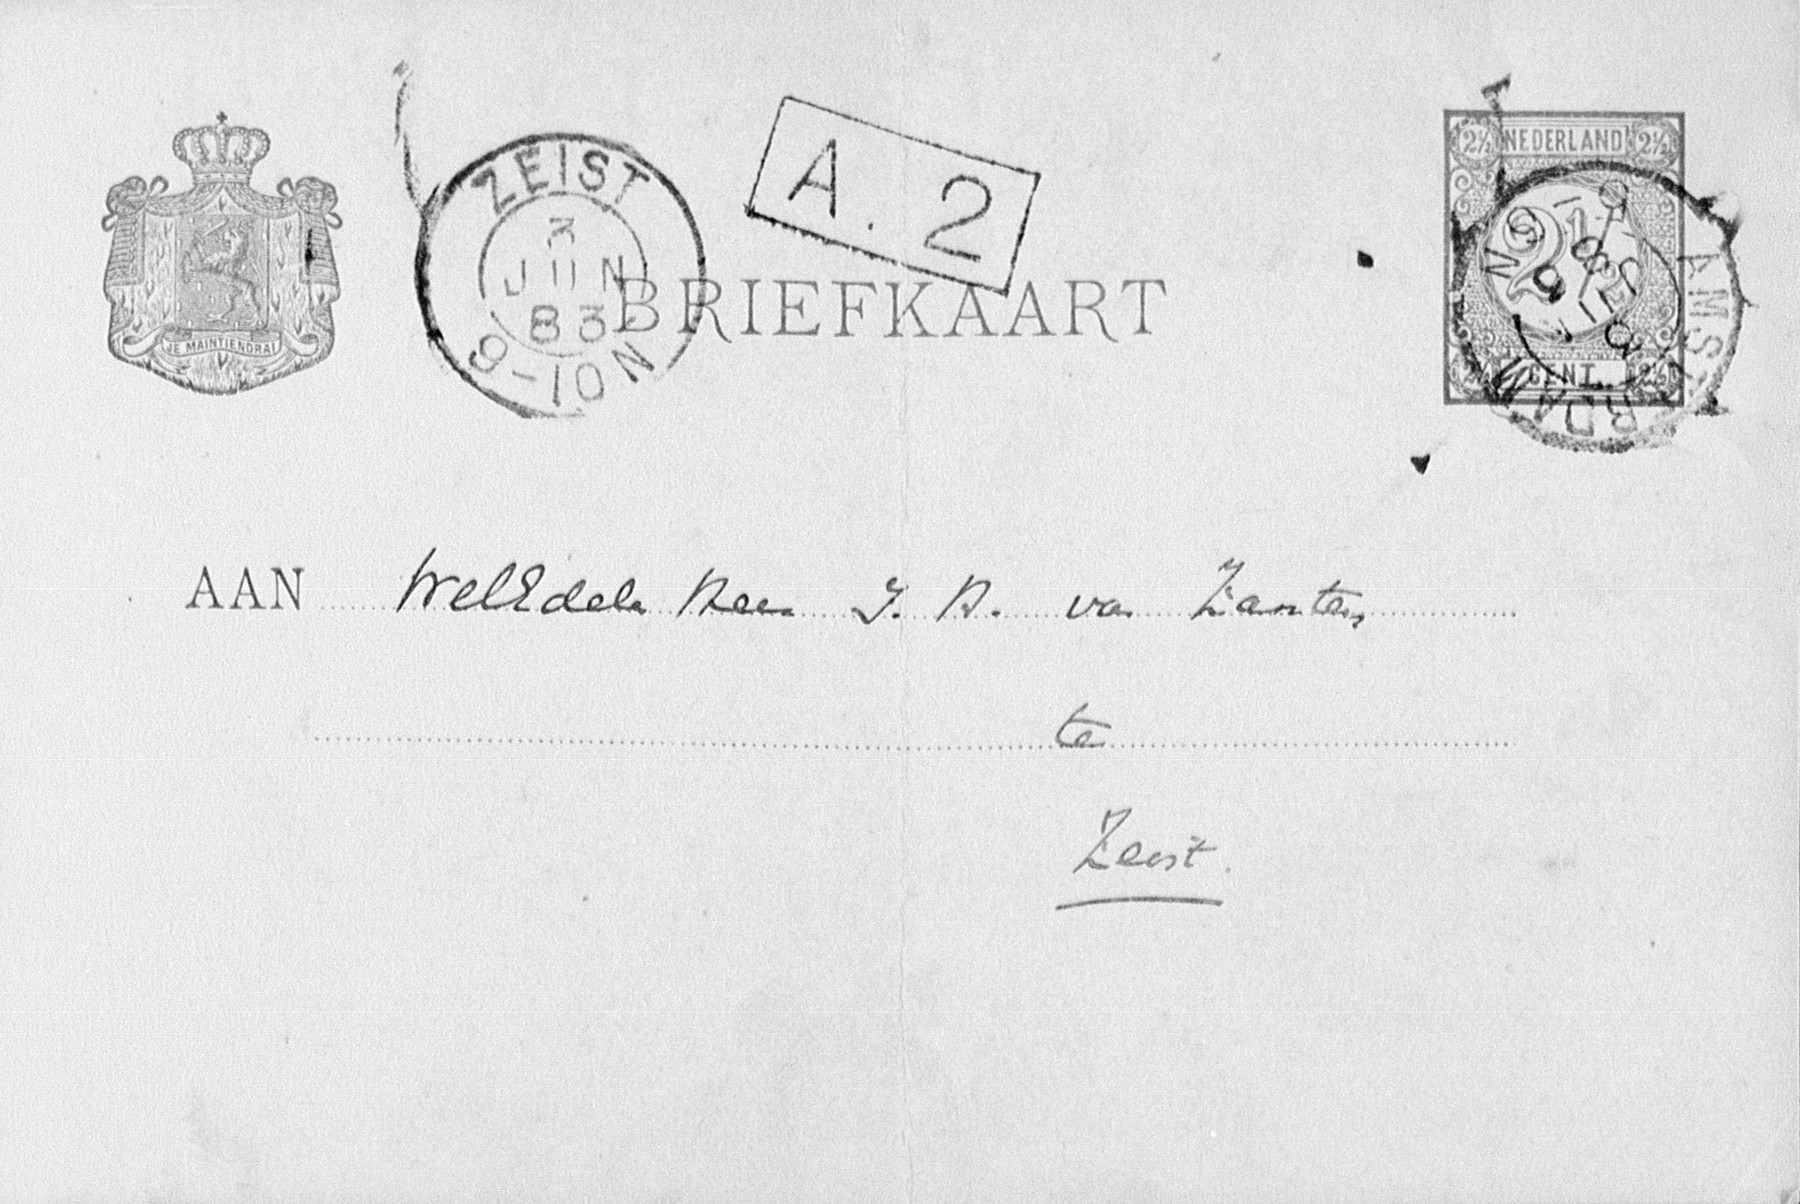 JE MAINTIENDRAI
ZEIST
3
JUN
83
9-10N
A. 2
BRIEFKAART
2½ NEDERLAND 2½
2½
2½ CENT 2½
AMSTERDAM
AAN WelEdele Heer J. H. van Zanten,
te
Zeist.